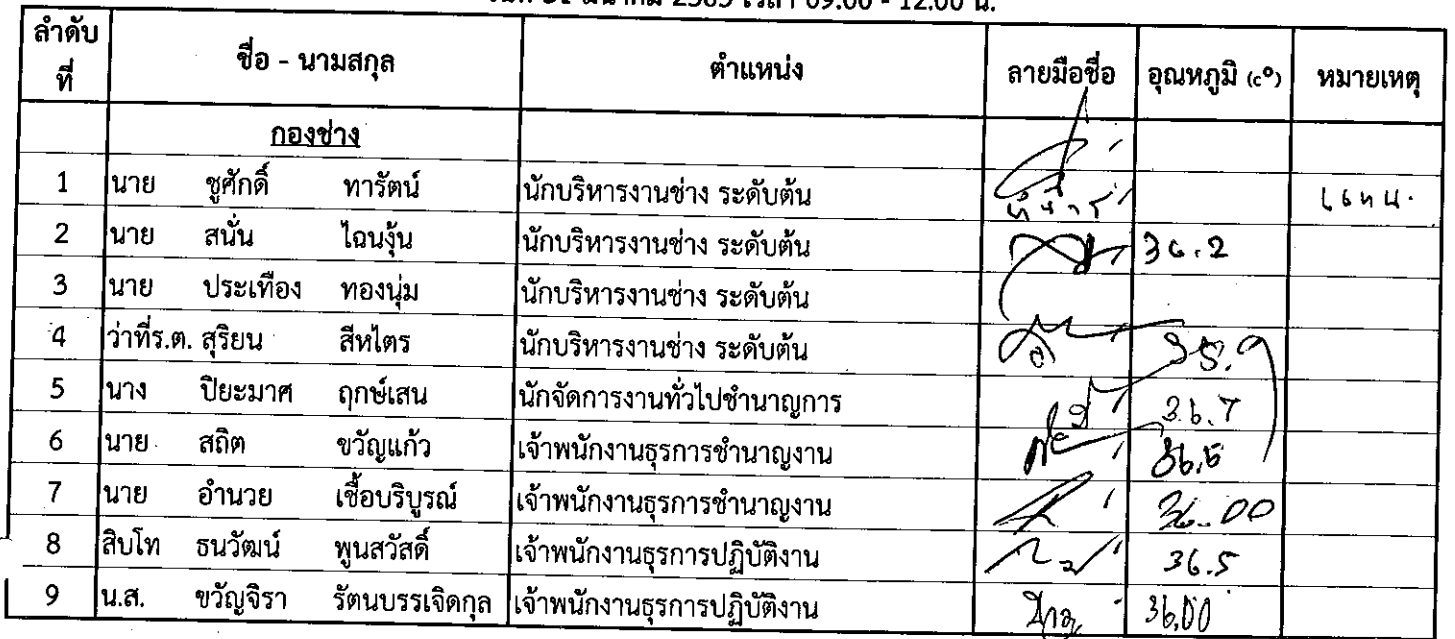 วันที่ 31 มีนาคม 2565 เวลา 09.00 - 12.00 น.
ลำดับที่ ชื่อ - นามสกุล ตำแหน่ง ลายมือชื่อ อุณหภูมิ (c°) หมายเหตุ
กองช่าง
1 นาย ชูศักดิ์ ทารัตน์ นักบริหารงานช่าง ระดับต้น แทน
2 นาย สนั่น ไฉนงุ้น นักบริหารงานช่าง ระดับต้น 36.2
3 นาย ประเทือง ทองนุ่ม นักบริหารงานช่าง ระดับต้น
4 ว่าที่ร.ต. สุริยน สีหไตร นักบริหารงานช่าง ระดับต้น 35.9
5 นาง ปิยะมาศ ฤกษ์เสน นักจัดการงานทั่วไปชำนาญการ 36.7
6 นาย สถิต ขวัญแก้ว เจ้าพนักงานธุรการชำนาญงาน 36.5
7 นาย อำนวย เชื้อบริบูรณ์ เจ้าพนักงานธุรการชำนาญงาน 36.00
8 สิบโท ธนวัฒน์ พูนสวัสดิ์ เจ้าพนักงานธุรการปฏิบัติงาน 36.5
9 น.ส. ขวัญจิรา รัตนบรรเจิดกุล เจ้าพนักงานธุรการปฏิบัติงาน 36.00